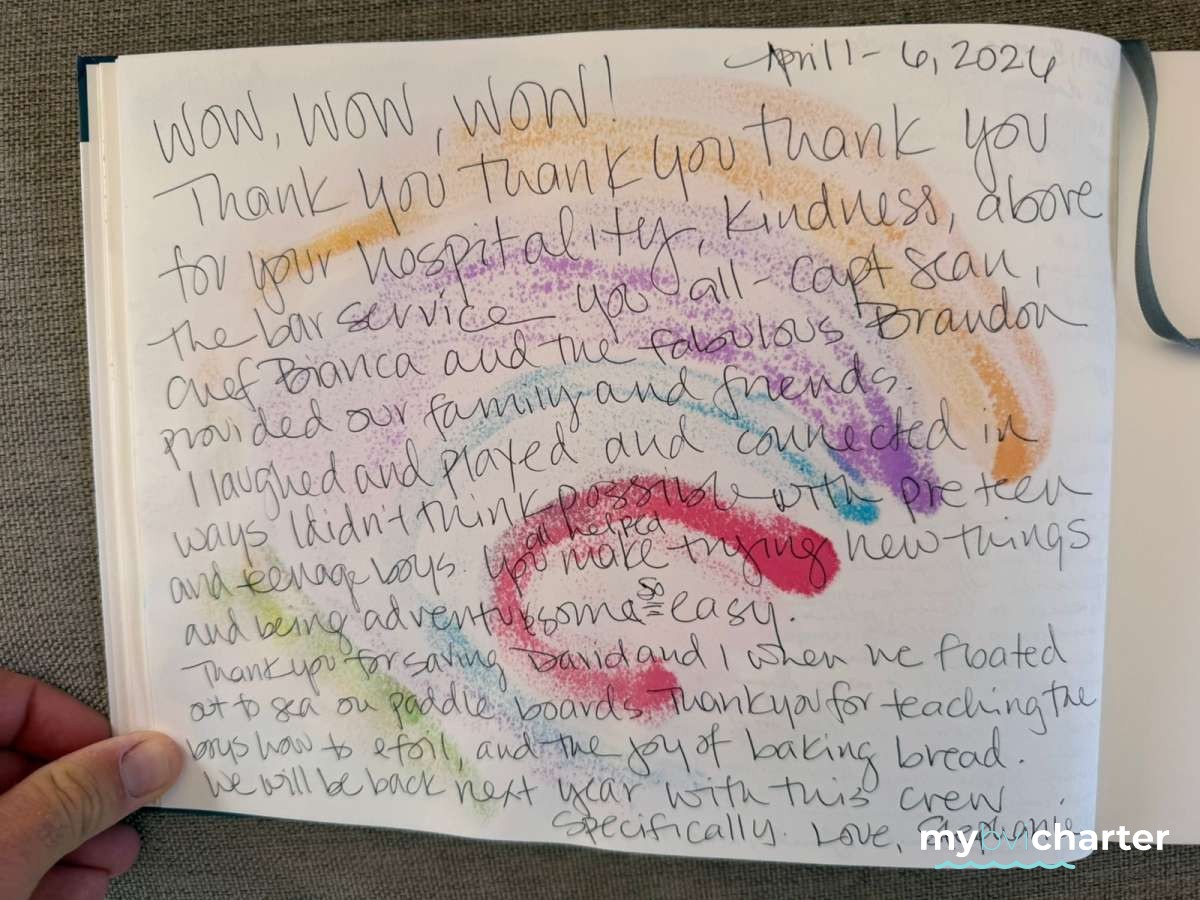 April 1 - 6, 2026
WOW, WOW, WOW!
Thank you thank you thank you
for your hospitality, kindness, above
the bar service you all - Capt Sean,
Chef Bianca and the fabulous Brandon
provided our family and friends.
I laughed and played and connected in
ways I didn't think possible with preteen
and teenage boys. You all helped make trying new things
and being adventuresome so easy.
Thank you for saving David and I when we floated
out to sea on paddle boards. Thank you for teaching the
boys how to efoil, and the joy of baking bread.
We will be back next year with this crew
specifically. Love, Stephanie
mybvicharter